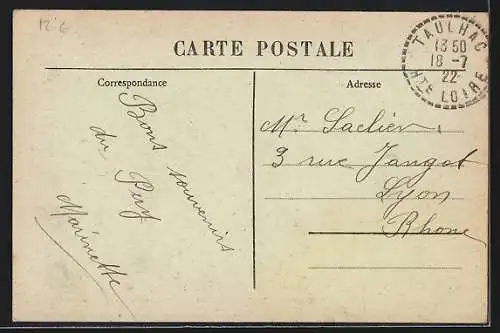 12.6
CARTE POSTALE
TAULHAC
13 50
18 -7
22
HTE LOIRE
Correspondance
Bons souvenirs
du Puy
Marinette
Adresse
Mr
3 rue Jangot
Lyon
Rhone